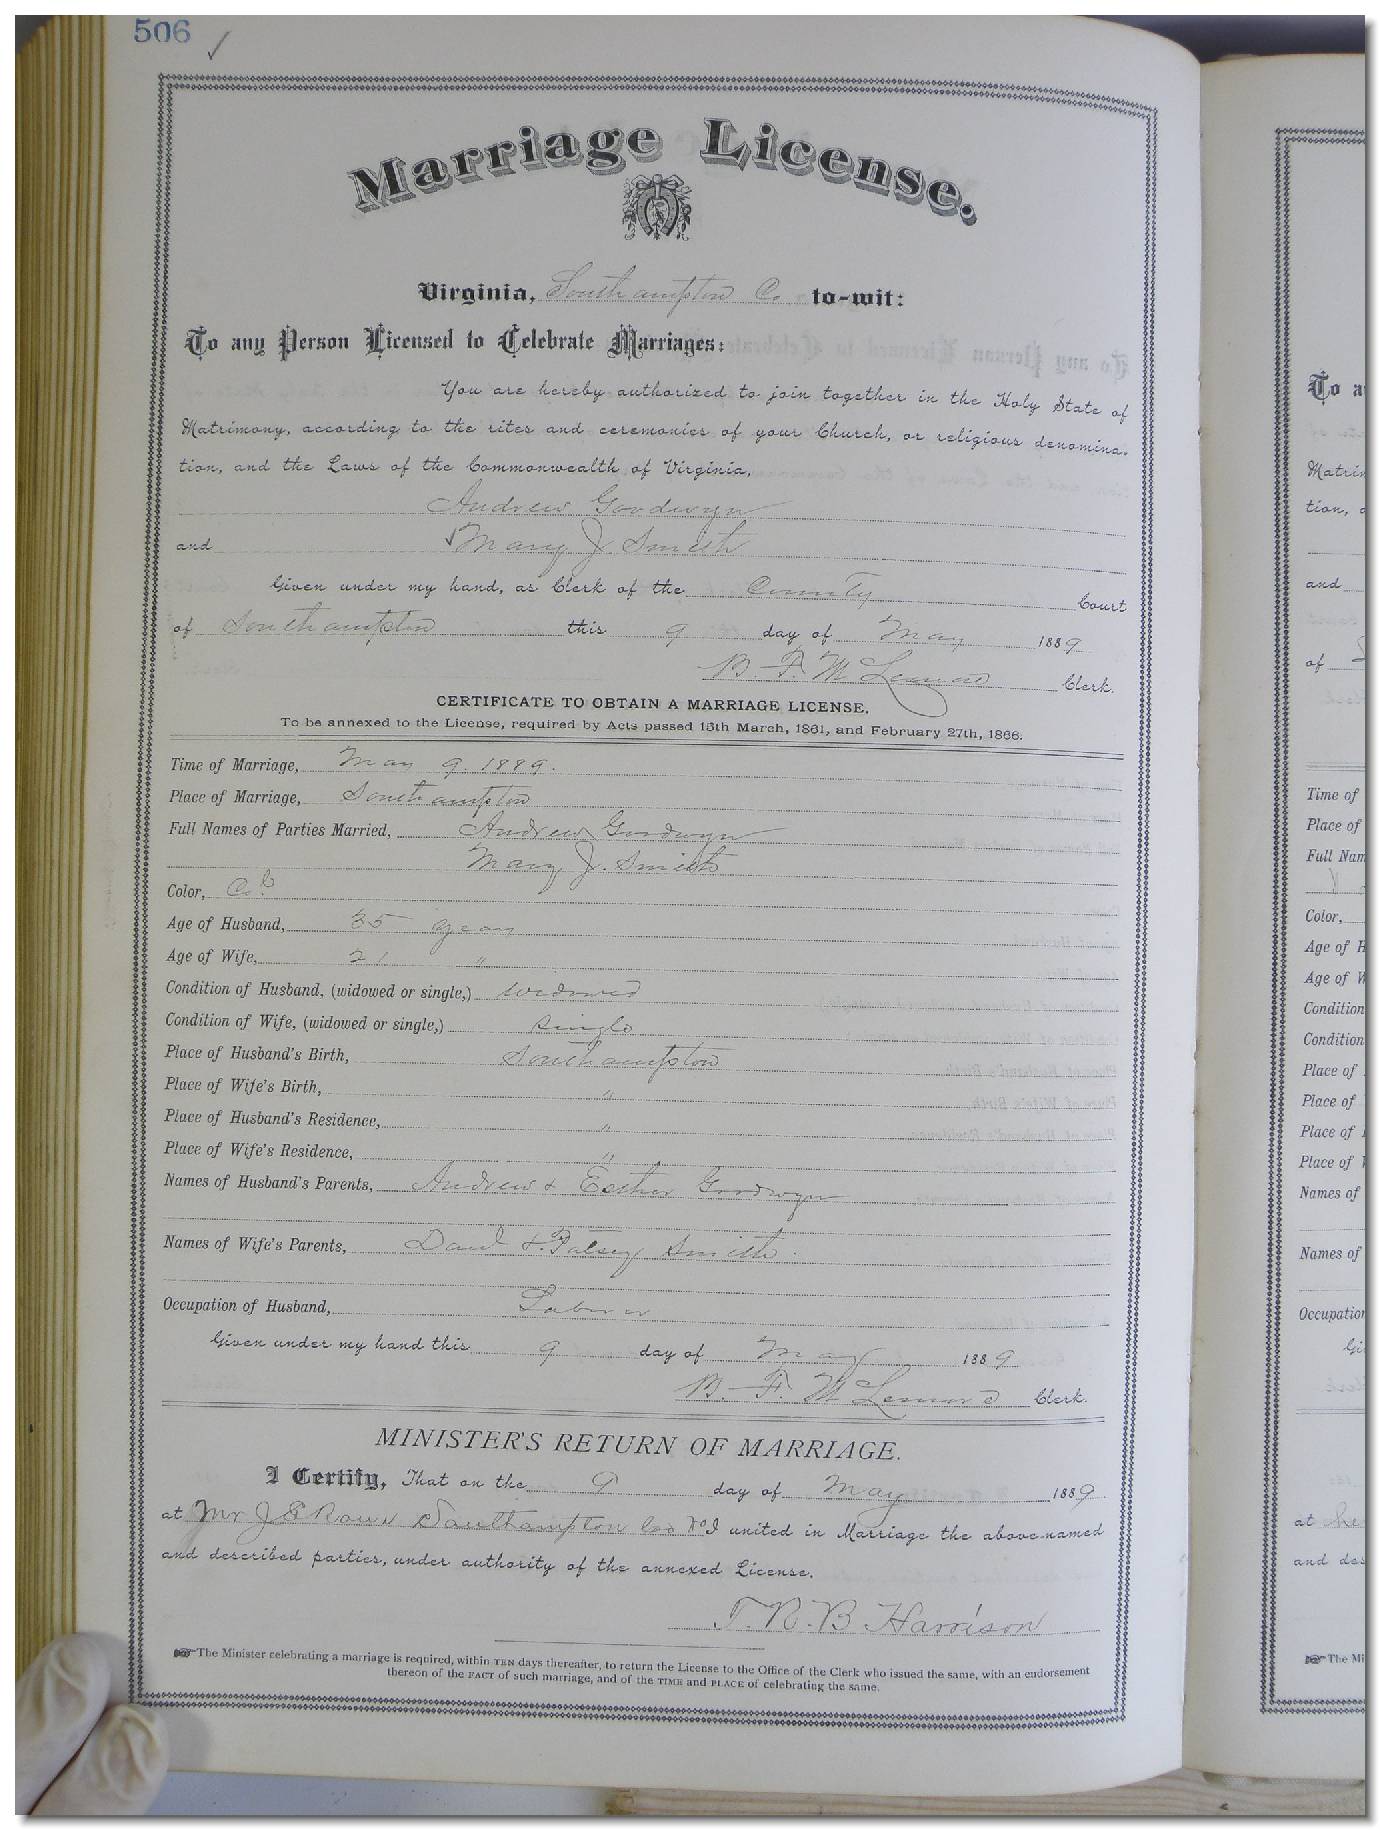 506 ✓
Marriage License.
Virginia, Southampton Co to-wit:
To any Person Licensed to Celebrate Marriages:
You are hereby authorized to join together in the Holy State of
Matrimony, according to the rites and ceremonies of your Church, or religious denomina-
tion, and the Laws of the Commonwealth of Virginia,
Andrew Goodwyn
and ✓ Mary J Smith
Given under my hand, as Clerk of the County Court
of Southampton this 9 day of May 1889
B. F. McLemore Clerk.
CERTIFICATE TO OBTAIN A MARRIAGE LICENSE,
To be annexed to the License, required by Acts passed 15th March, 1861, and February 27th, 1866.
Time of Marriage, May 9. 1889.
Place of Marriage, Southampton
Full Names of Parties Married, Andrew Goodwyn
Mary J. Smith
Color, Cold
Age of Husband, 35 years
Age of Wife, 21 "
Condition of Husband, (widowed or single,) widowed
Condition of Wife, (widowed or single,) single
Place of Husband's Birth, Southampton
Place of Wife's Birth, "
Place of Husband's Residence, "
Place of Wife's Residence, "
Names of Husband's Parents, Andrew & Esther Goodwyn
Names of Wife's Parents, David & Patsey Smith.
Occupation of Husband, Laborer
Given under my hand this 9 day of May 1889
B. F. McLemore Clerk.
MINISTER'S RETURN OF MARRIAGE.
I Certify, That on the 9 day of May 1889
at Mr J Southampton Co Va I united in Marriage the above-named
and described parties, under authority of the annexed License.
T. R. B. Harrison
☞ The Minister celebrating a marriage is required, within TEN days thereafter, to return the License to the Office of the Clerk who issued the same, with an endorsement
thereon of the FACT of such marriage, and of the TIME and PLACE of celebrating the same.
To a
Matrim
tion,
and
of
Time of
Place of
Full Nam
Color,
Age of H
Age of W
Condition
Condition
Place of
Place of
Place of
Place of
Names of
Names of
Occupation
Gi
at
and des
☞ The Mi